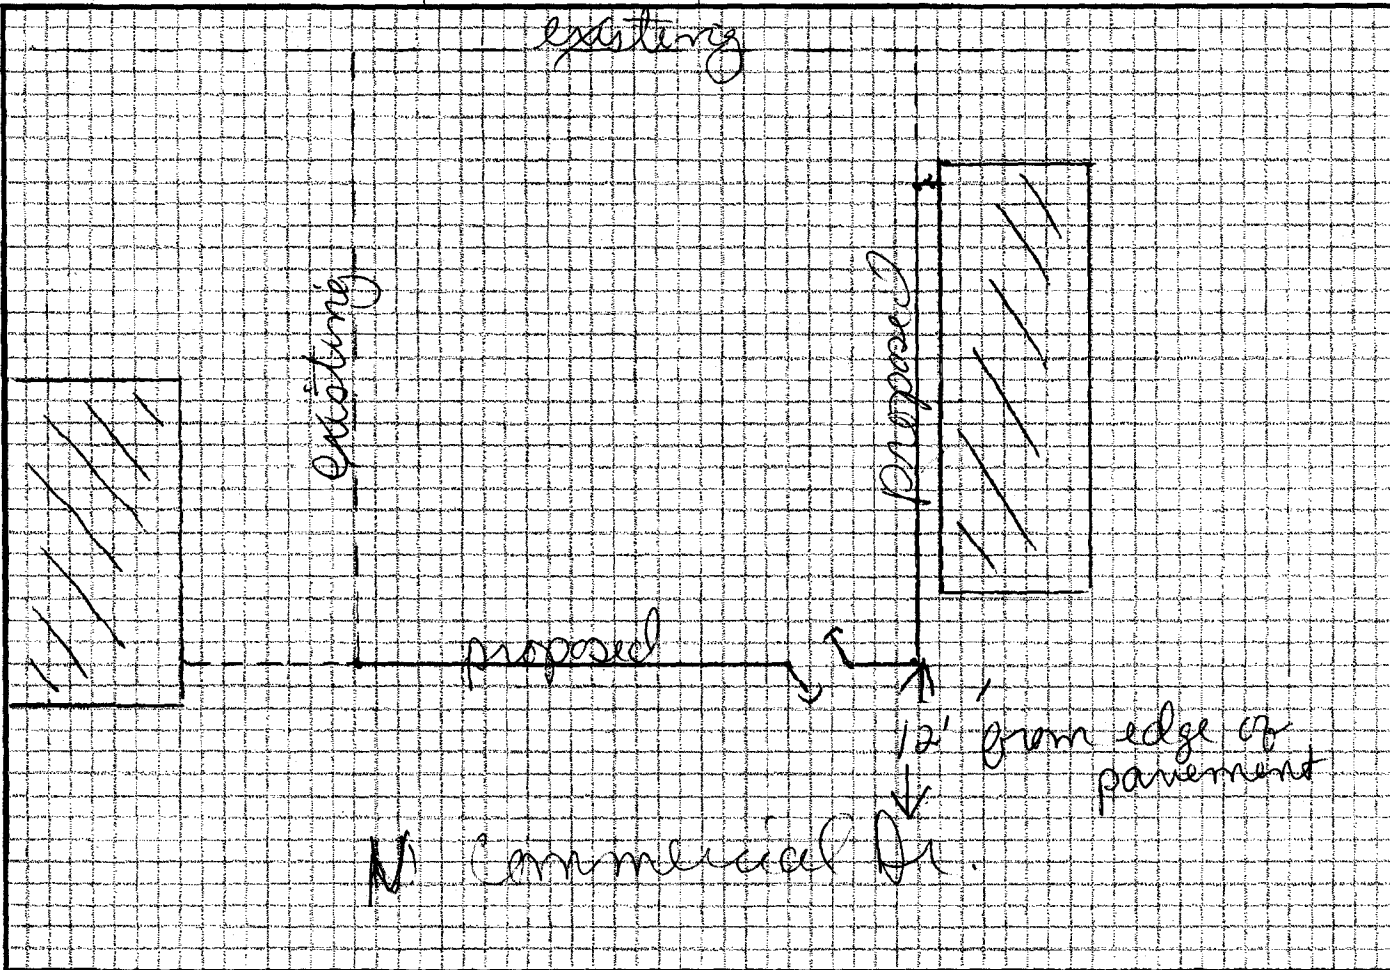 existing
existing
proposed
proposed
12' from edge of
pavement
N Commercial Dr.